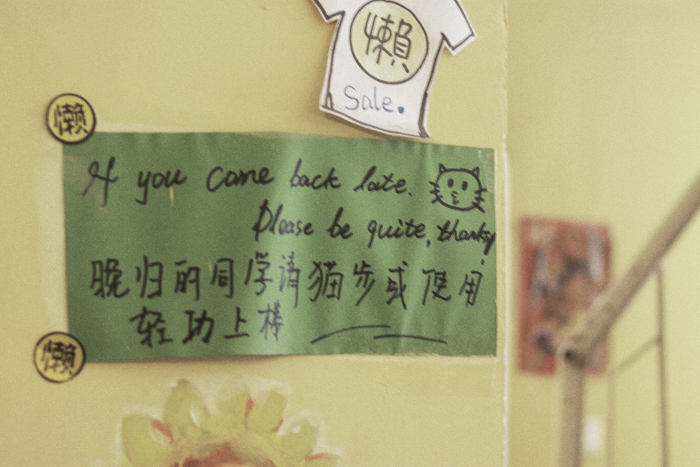 懒
Sale.
懒
If you come back late.
Please be quite, thanks
晚归的同学请猫步或使用
轻功上楼
懒